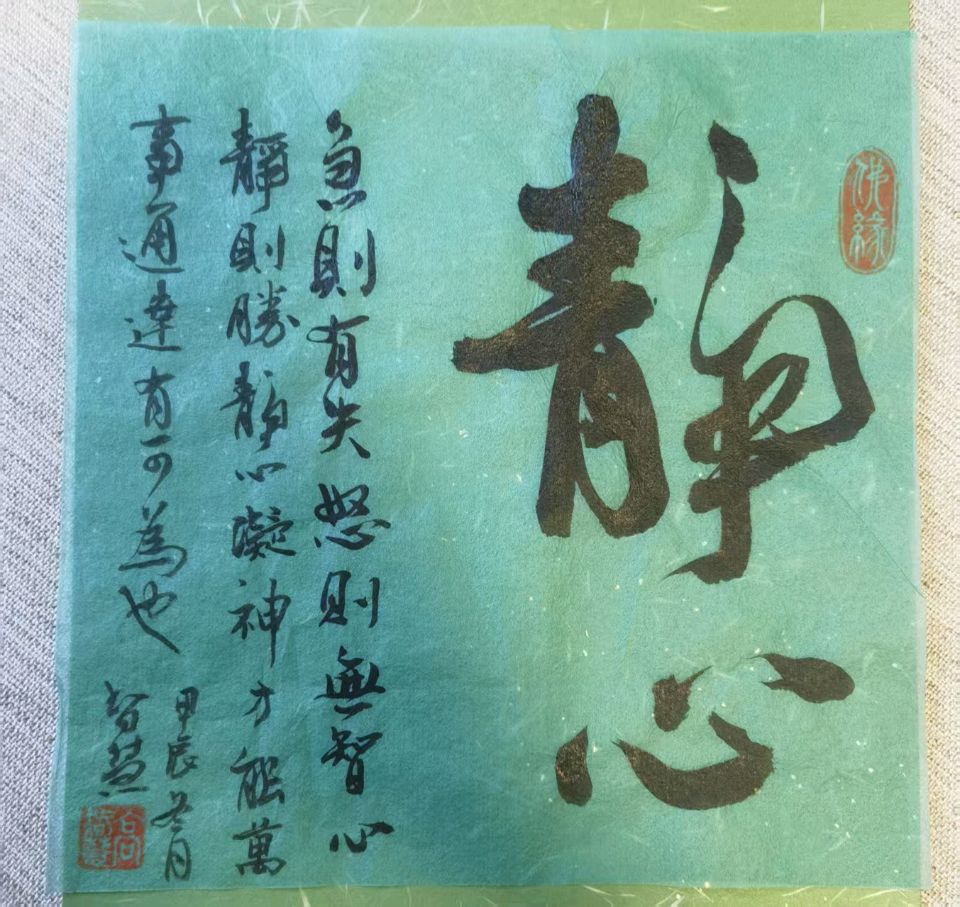 靜心
佛緣
急則有失怒則無智心
靜則勝靜心凝神方能萬
事通達有可為也
甲辰冬月
智慧